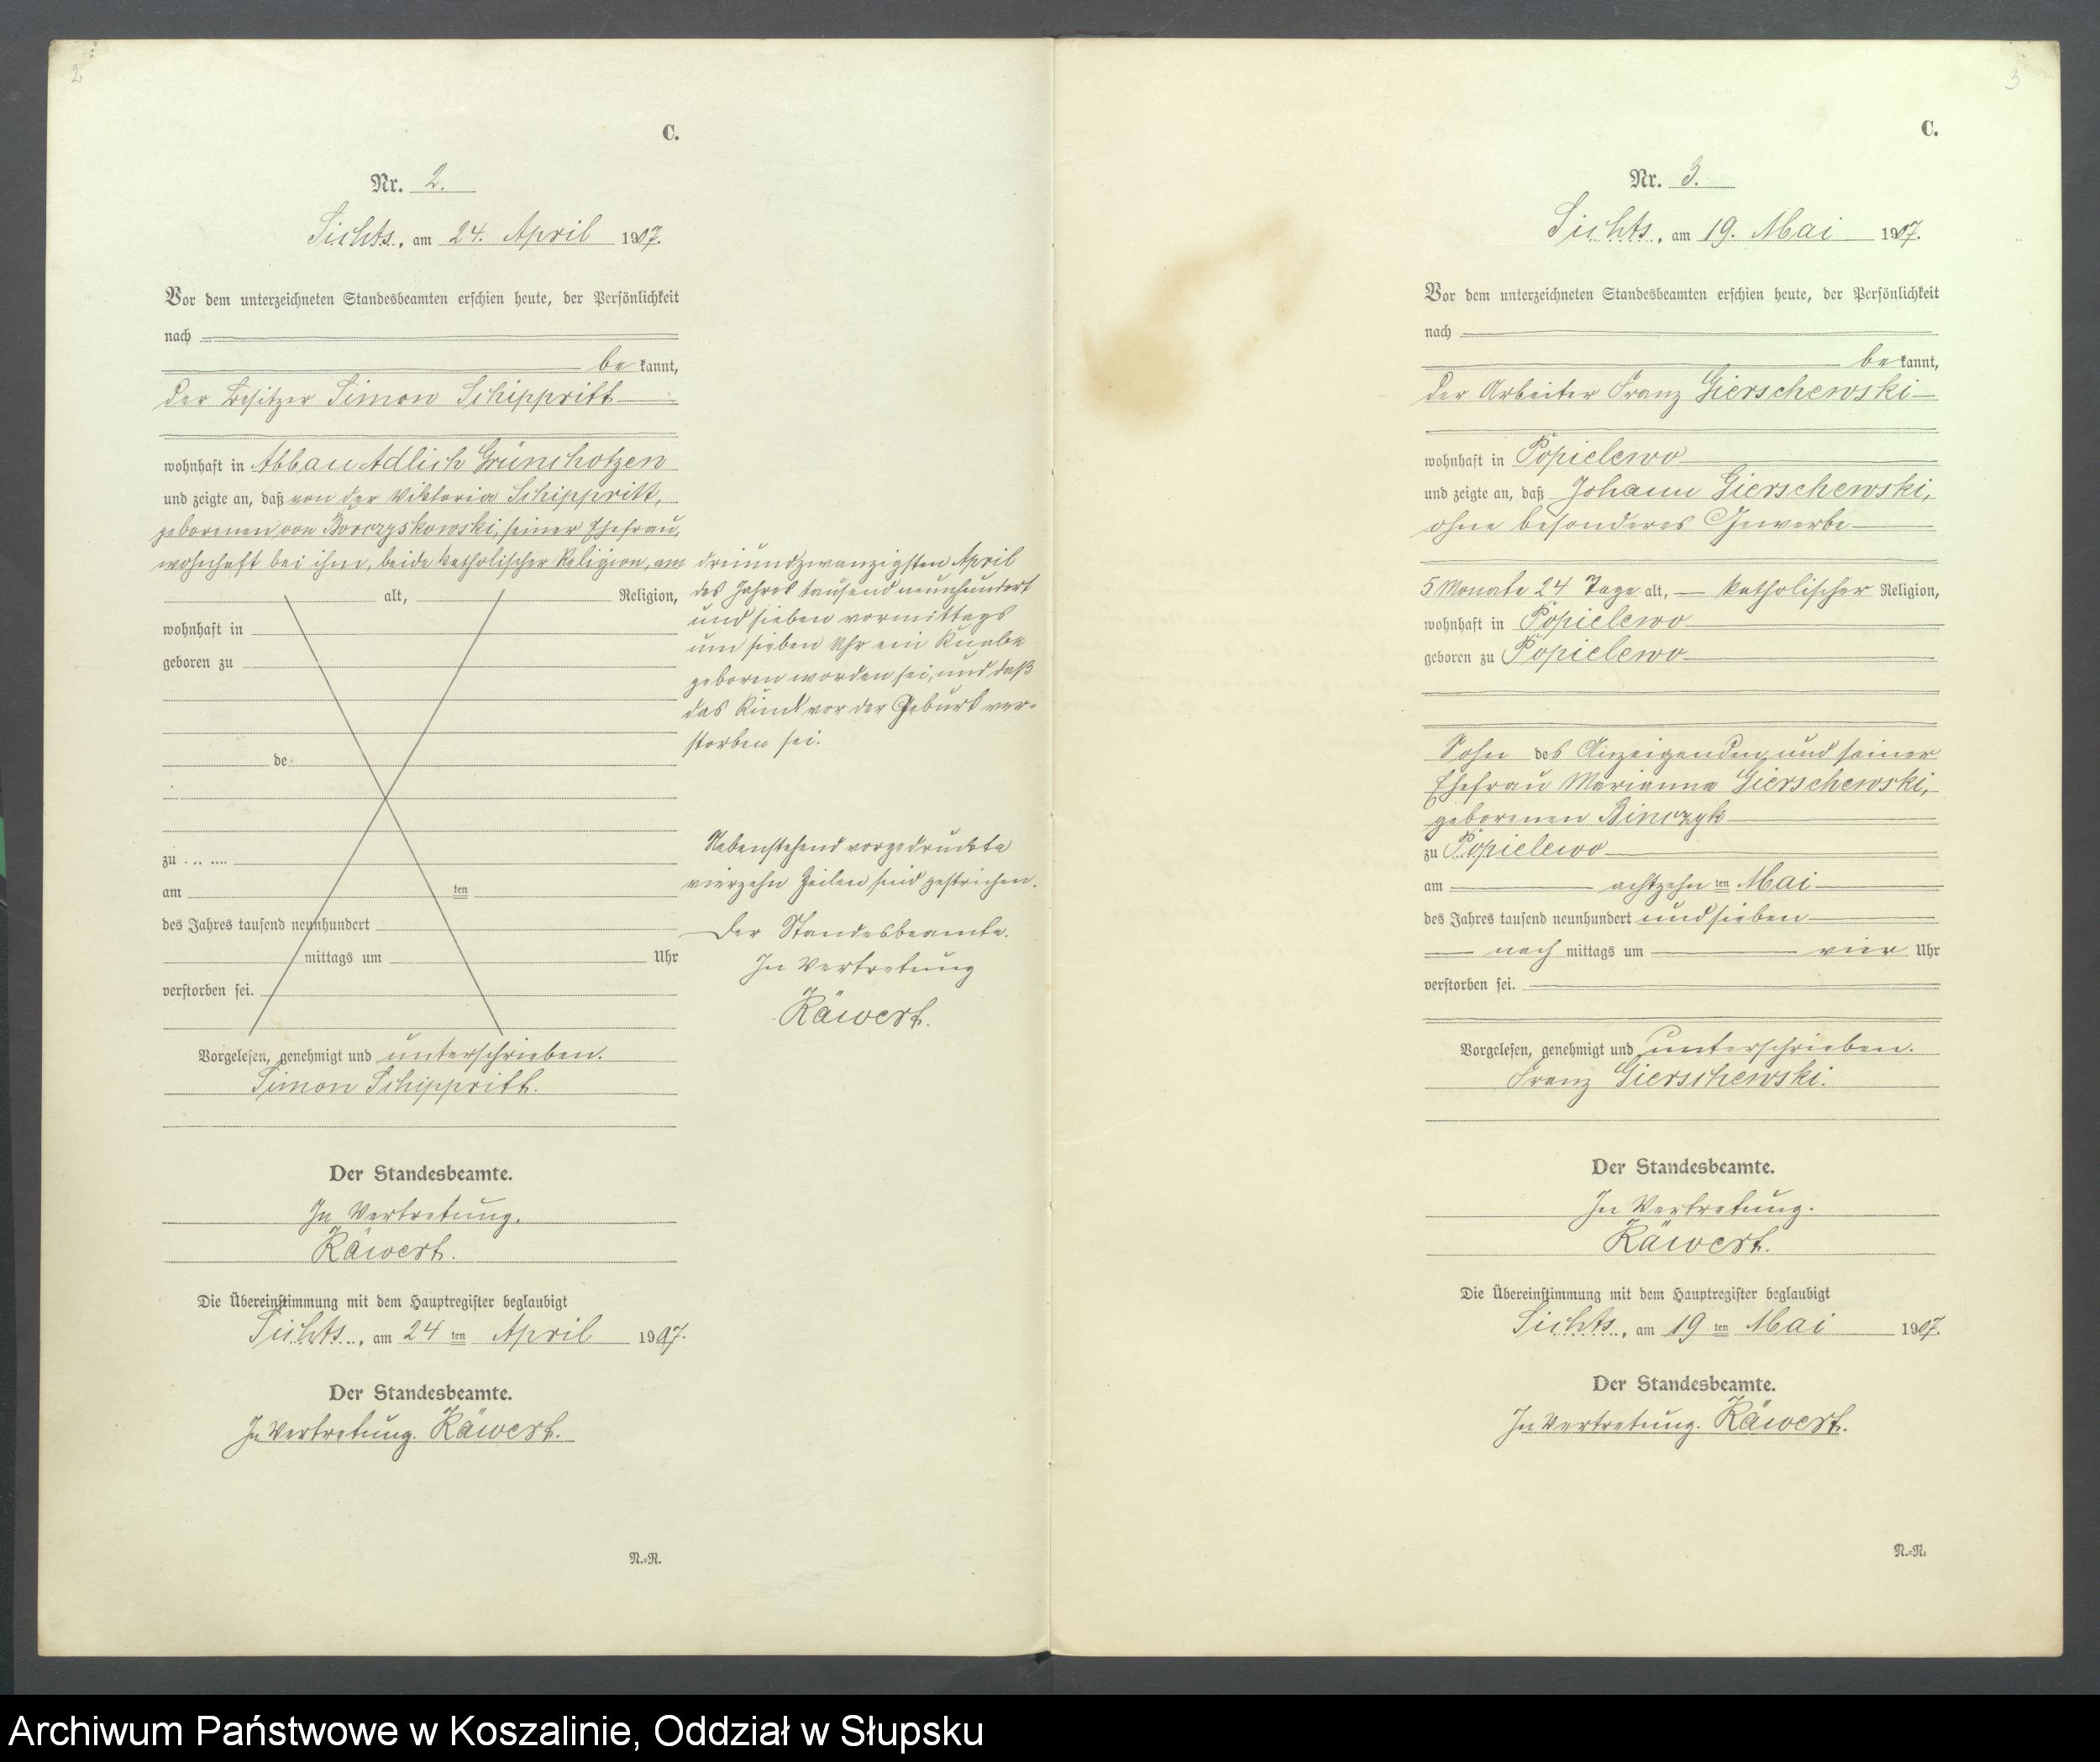 2
C.
Nr. 2.
Sichts, am 24. April 1907.
Vor dem unterzeichneten Standesbeamten erschien heute, der Persönlichkeit
nach
be kannt,
der Besitzer Simon Schippritt
wohnhaft in Abbau Adlich Grünchotzen
und zeigte an, daß von der Viktoria Schippritt,
geborenen von Borczyskowski, seiner Ehefrau,
wohnhaft bei ihm, beide katholischer Religion, am
dreiundzwanzigsten April
des Jahres tausend neunhundert
und sieben vormittags
um sieben Uhr ein Knabe
geboren worden sei, und daß
das Kind vor der Geburt ver-
storben sei.
alt, Religion,
wohnhaft in
geboren zu
de
zu
am ten
des Jahres tausend neunhundert
mittags um Uhr
verstorben sei.
Nebenstehend vorgedruckte
vierzehn Zeilen sind gestrichen.
Der Standesbeamte.
In Vertretung
Räwert.
Vorgelesen, genehmigt und unterschrieben.
Simon Schippritt.
Der Standesbeamte.
In Vertretung.
Räwert.
Die Übereinstimmung mit dem Hauptregister beglaubigt
Sichts, am 24 ten April 1907.
Der Standesbeamte.
In Vertretung. Räwert.
N.-R.
3
C.
Nr. 3.
Sichts, am 19. Mai 1907.
Vor dem unterzeichneten Standesbeamten erschien heute, der Persönlichkeit
nach
be kannt,
der Arbeiter Franz Gierschewski
wohnhaft in Popielewo
und zeigte an, daß Johann Gierschewski,
ohne besonderes Gewerbe
5 Monate 24 Tage alt, katholischer Religion,
wohnhaft in Popielewo
geboren zu Popielewo
Sohn des Anzeigenden und seiner
Ehefrau Marianna Gierschewski,
geborenen Binczyk
zu Popielewo
am achtzehn ten Mai
des Jahres tausend neunhundert und sieben
nach mittags um vier Uhr
verstorben sei.
Vorgelesen, genehmigt und unterschrieben.
Franz Gierschewski.
Der Standesbeamte.
In Vertretung.
Räwert.
Die Übereinstimmung mit dem Hauptregister beglaubigt
Sichts, am 19 ten Mai 1907.
Der Standesbeamte.
In Vertretung. Räwert.
N.-R.
Archiwum Państwowe w Koszalinie, Oddział w Słupsku